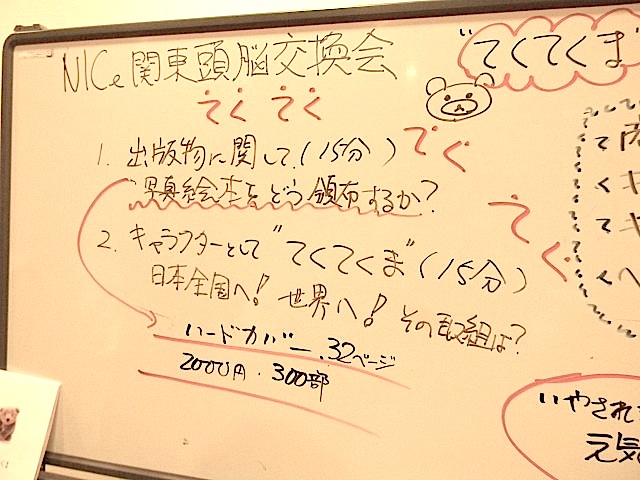 NICe 関東頭脳交換会
てく てく
てく
てく
1. 出版物に関して(15分)
写真絵本をどう頒布するか?
2. キャラクターとして"てくてくま"(15分)
日本全国へ! 世界へ! その取組は?
ハードカバー.32ページ
2000円・300部
"てくてくま
て
く
て
く
いやされ
元気